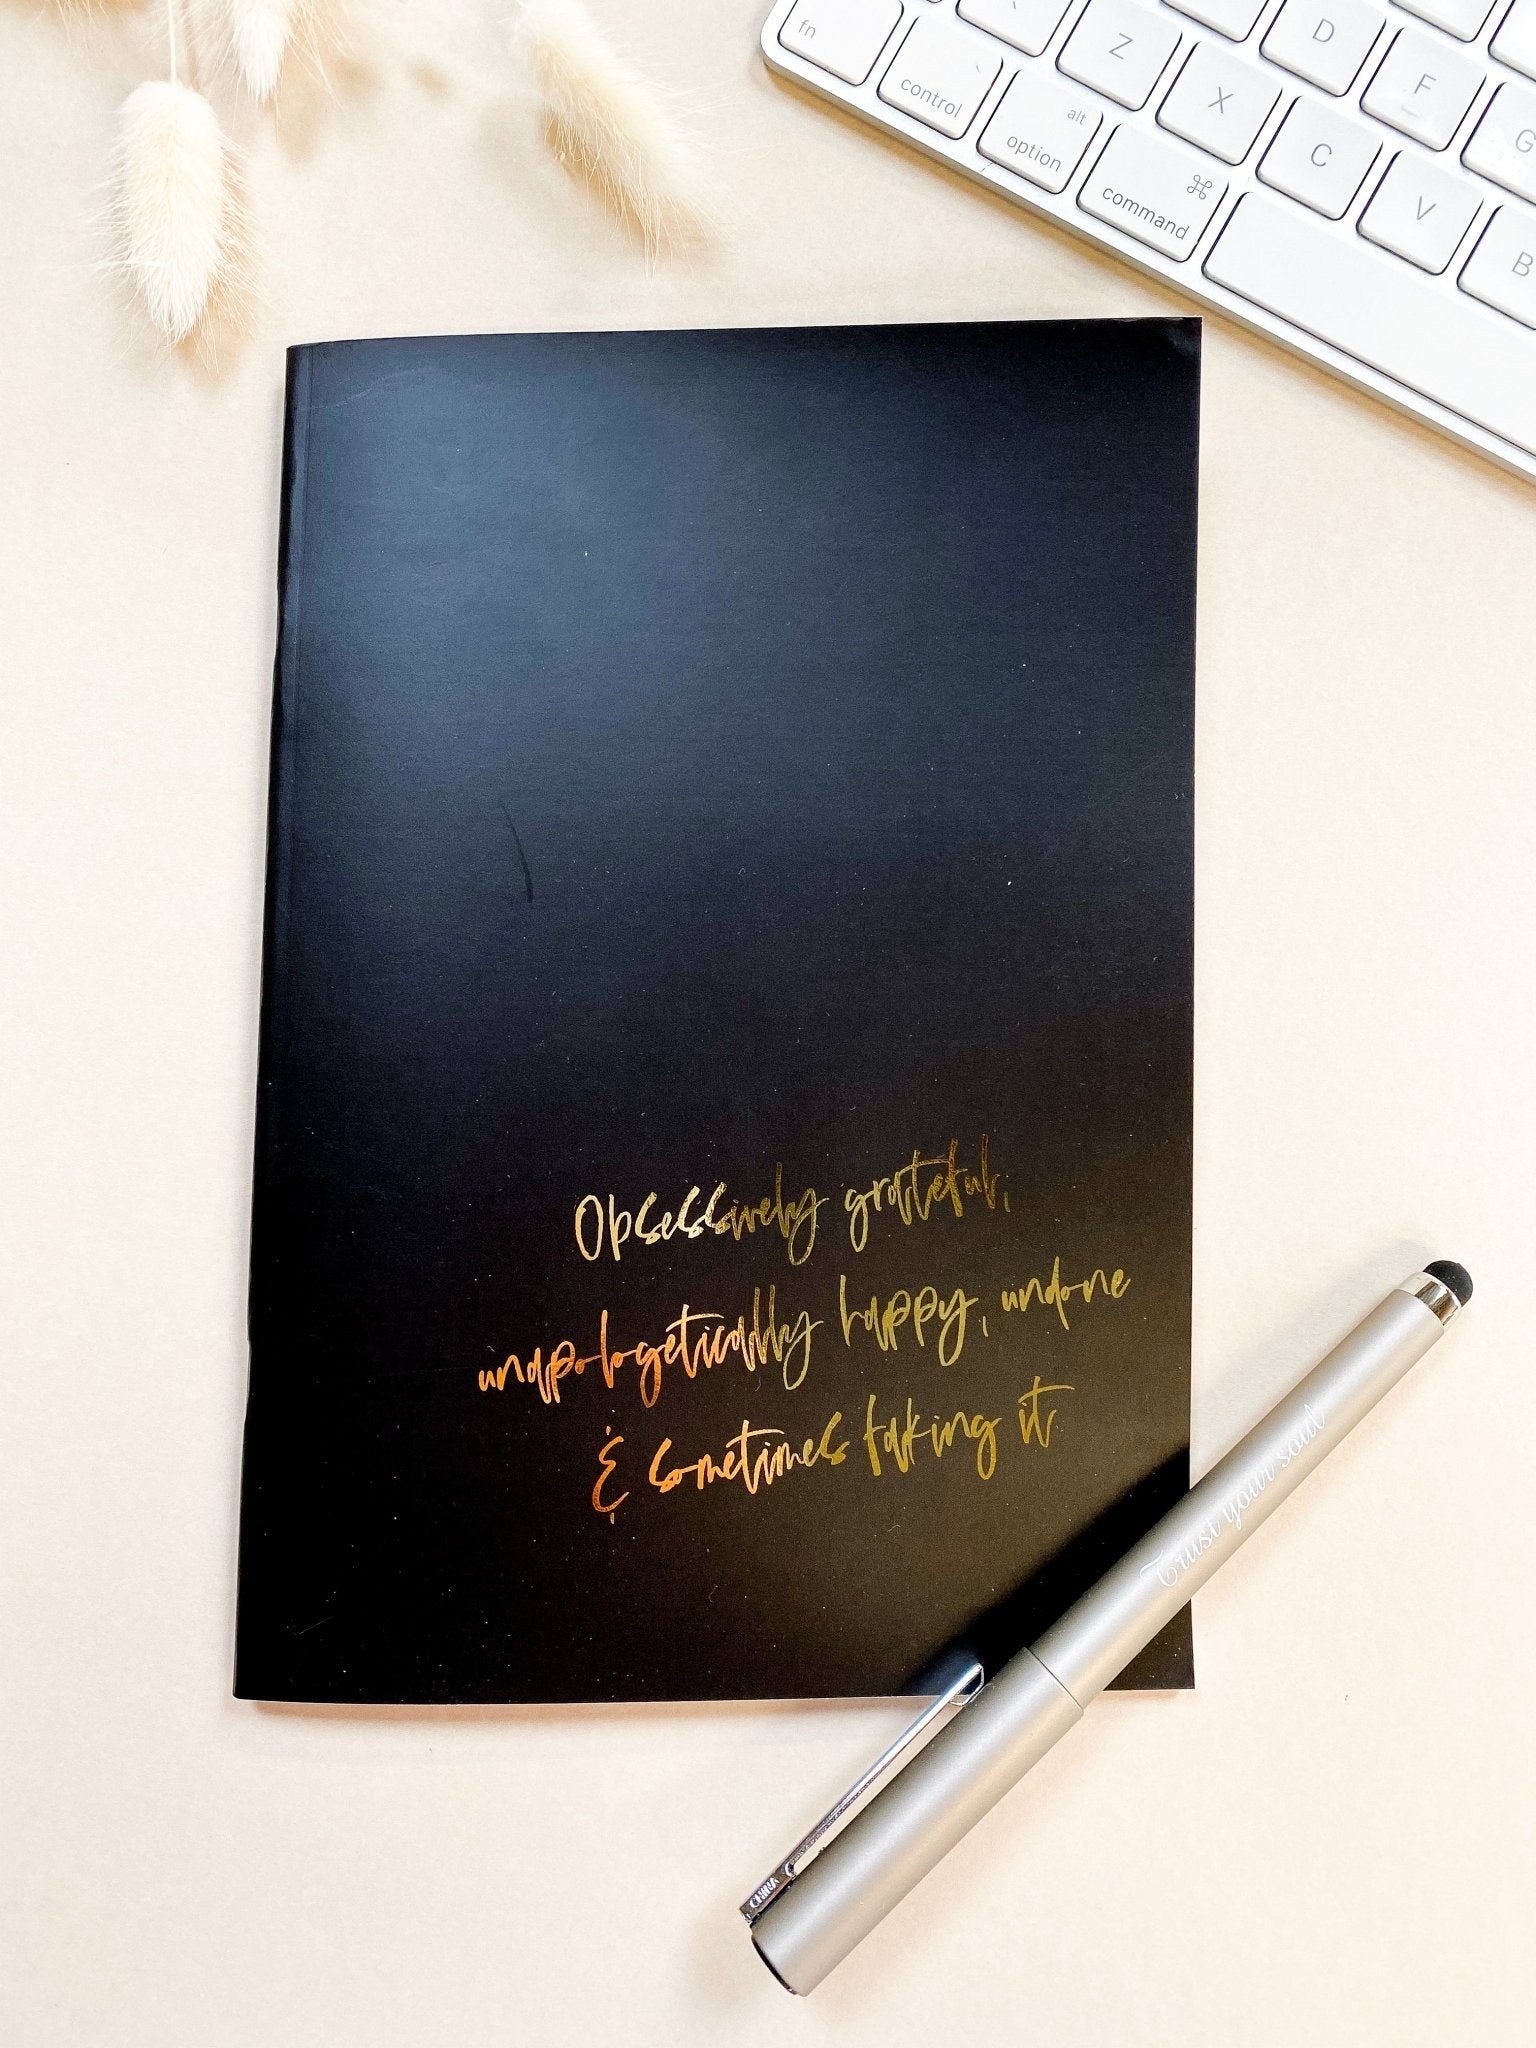 fn
control
alt
option
⌘
command
`
Z
X
C
V
B
D
F
G
Obsessively grateful,
unapologetically happy, undone
& sometimes faking it
Trust your soul
CHINA